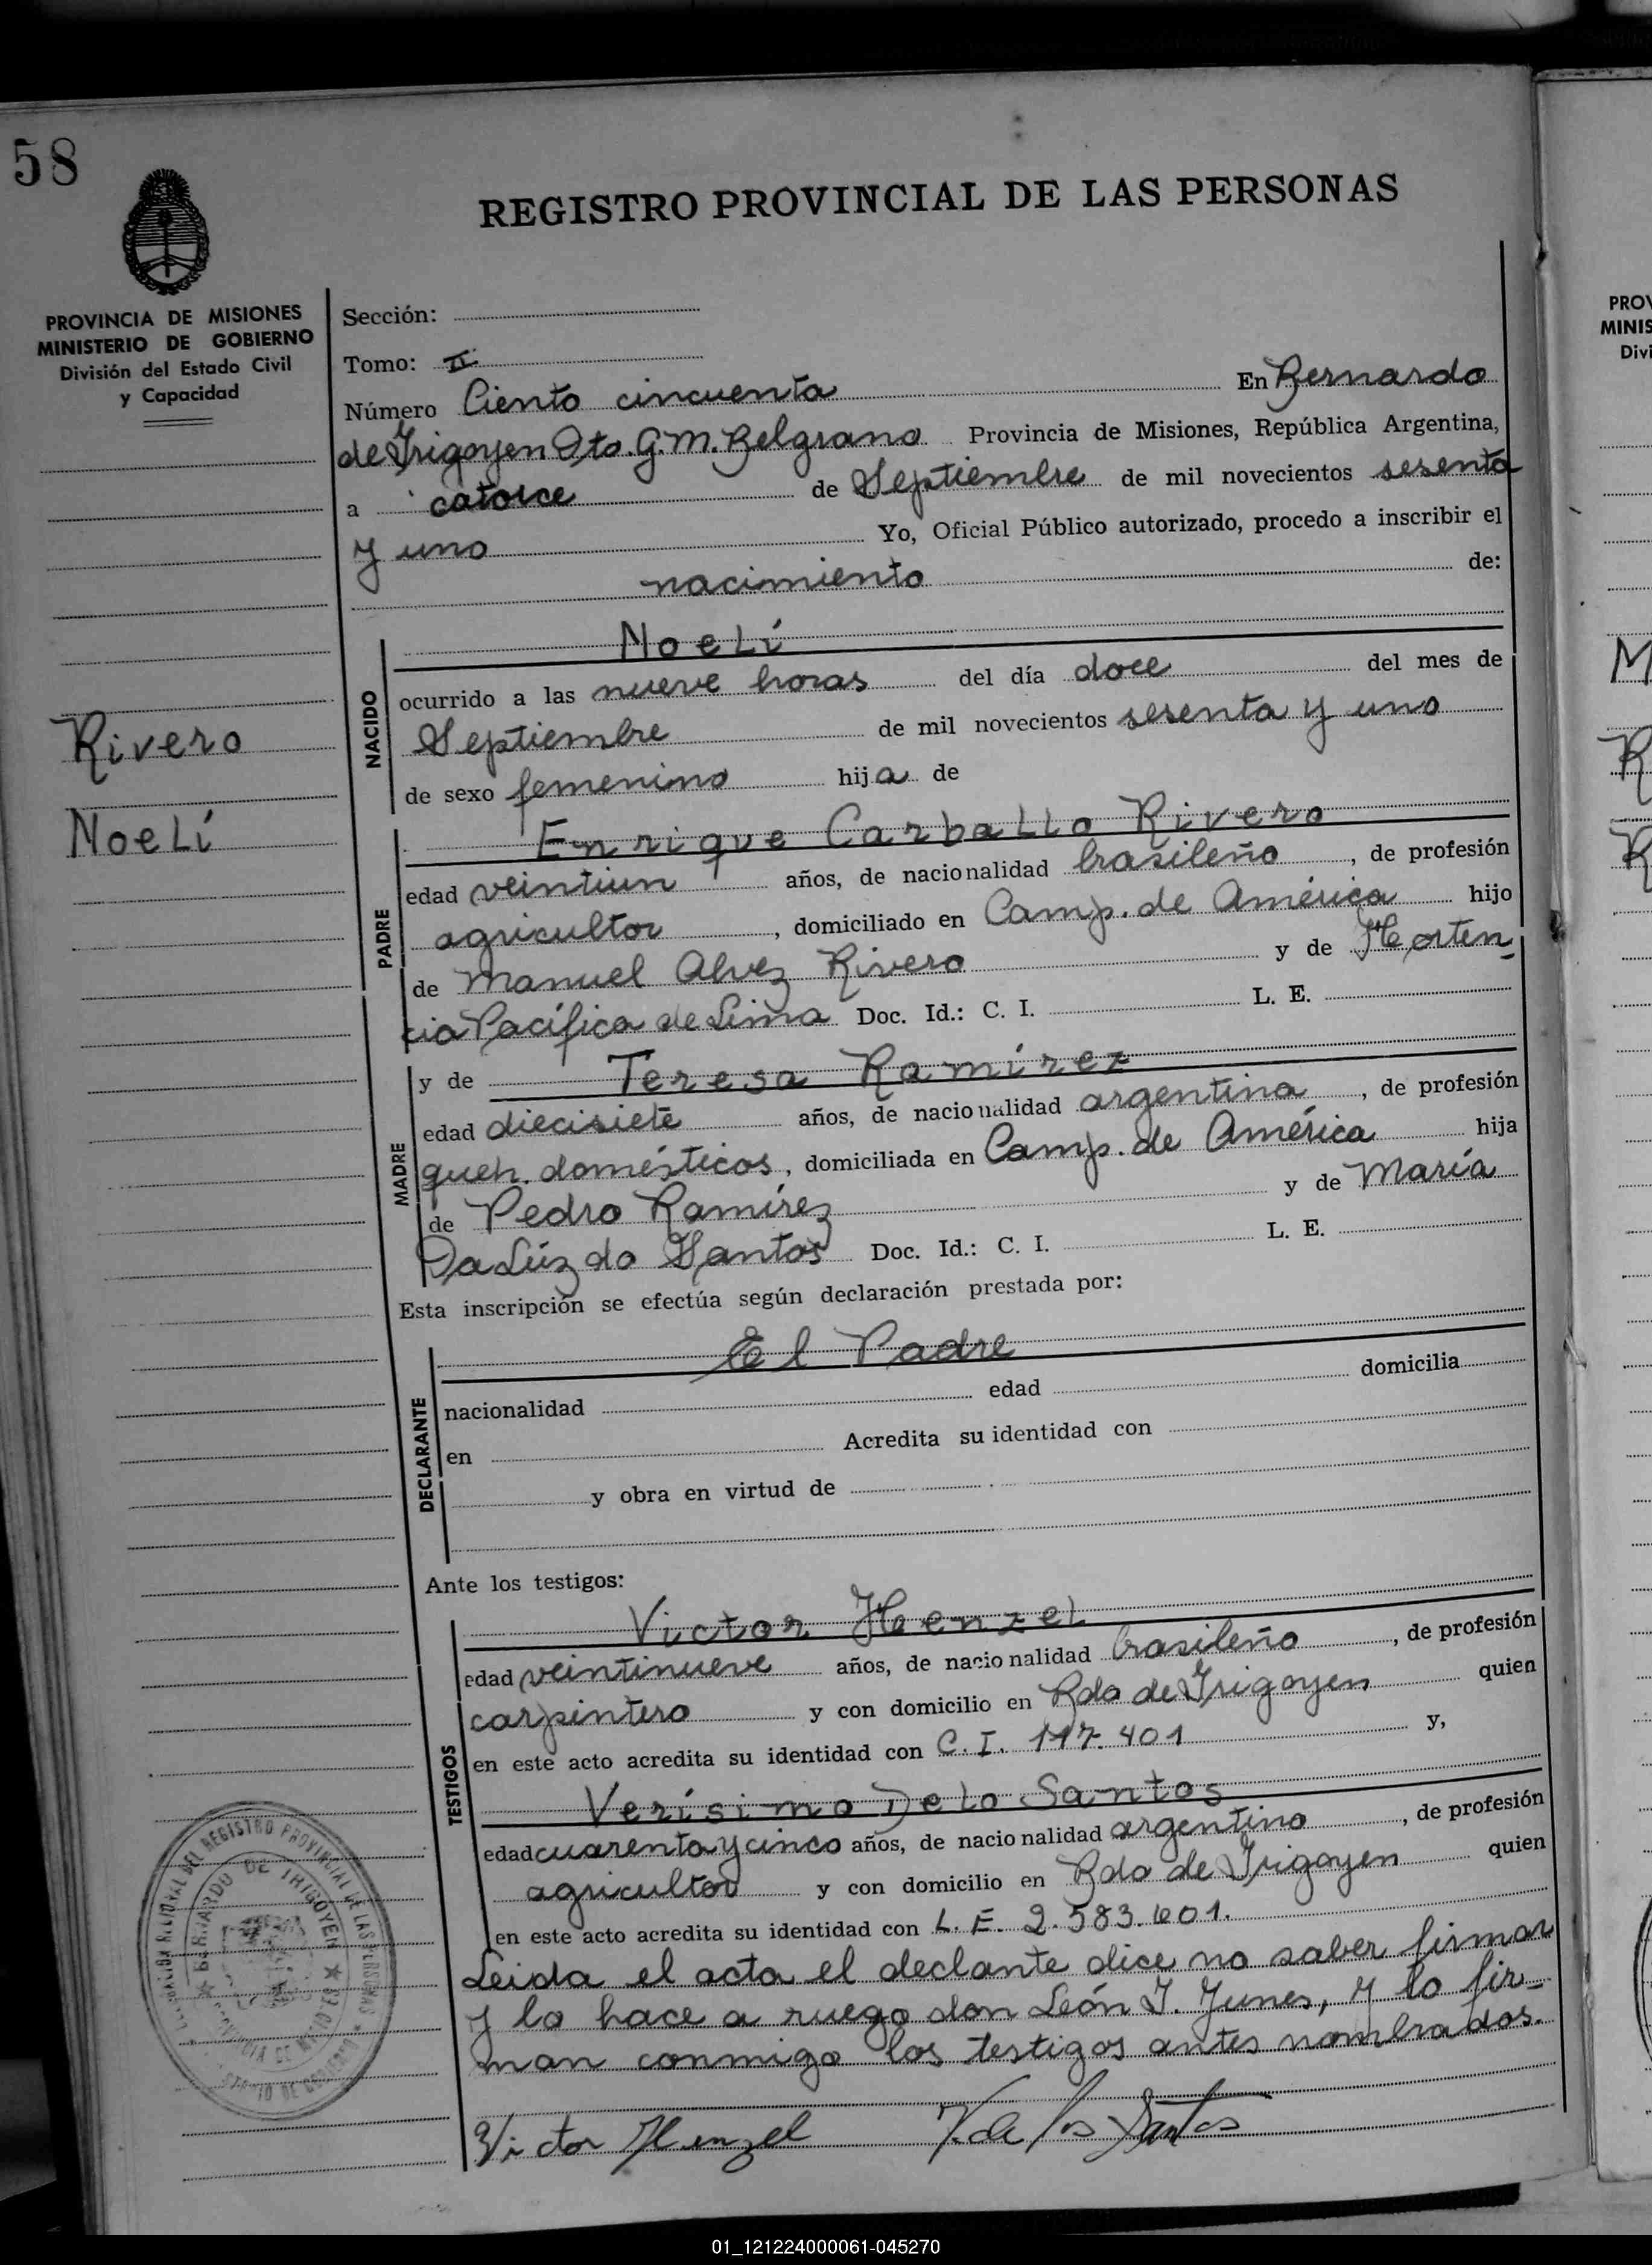 58
REGISTRO PROVINCIAL DE LAS PERSONAS
PROVINCIA DE MISIONES
MINISTERIO DE GOBIERNO
División del Estado Civil
y Capacidad
Rivero
Noelí
Sección:
Tomo: II
Número Ciento cincuenta En Bernardo
de Irigoyen Dto. G. M. Belgrano Provincia de Misiones, República Argentina,
a catorce de Septiembre de mil novecientos sesenta
y uno Yo, Oficial Público autorizado, procedo a inscribir el
nacimiento de:
NACIDO
Noelí
ocurrido a las nueve horas del día doce del mes de
Septiembre de mil novecientos sesenta y uno
de sexo femenino hija de
PADRE
Enrique Carballo Rivero
edad veintiun años, de nacionalidad brasileño, de profesión
agricultor, domiciliado en Camp. de América hijo
de Manuel Alvez Rivero y de Horten
cia Pacífica de Lima Doc. Id.: C. I. L. E.
MADRE
y de Teresa Ramírez
edad diecisiete años, de nacionalidad argentina, de profesión
queh. domésticos, domiciliada en Camp. de América hija
de Pedro Ramírez y de María
Da Lúz do Santos Doc. Id.: C. I. L. E.
Esta inscripción se efectúa según declaración prestada por:
DECLARANTE
El Padre
nacionalidad edad domicilia
en Acredita su identidad con
y obra en virtud de
Ante los testigos:
TESTIGOS
Victor Henzel
edad veintinueve años, de nacionalidad brasileño, de profesión
carpintero y con domicilio en Bdo de Irigoyen quien
en este acto acredita su identidad con C. I. 117.401 y,
Verísimo De lo Santos
edad cuarenta y cinco años, de nacionalidad argentino, de profesión
agricultor y con domicilio en Bdo de Irigoyen quien
en este acto acredita su identidad con L. E. 2.583.601.
Leida el acta el declante dice no saber firmar
y lo hace a ruego don León J. Junes, y lo fir-
man conmigo los testigos antes nombrados.
Victor Henzel V. de los Santos
DEL REGISTRO PROVINCIAL DE LAS PERSONAS
BERNARDO DE IRIGOYEN
PROV
MINIS
Divi
01_121224000061-045270